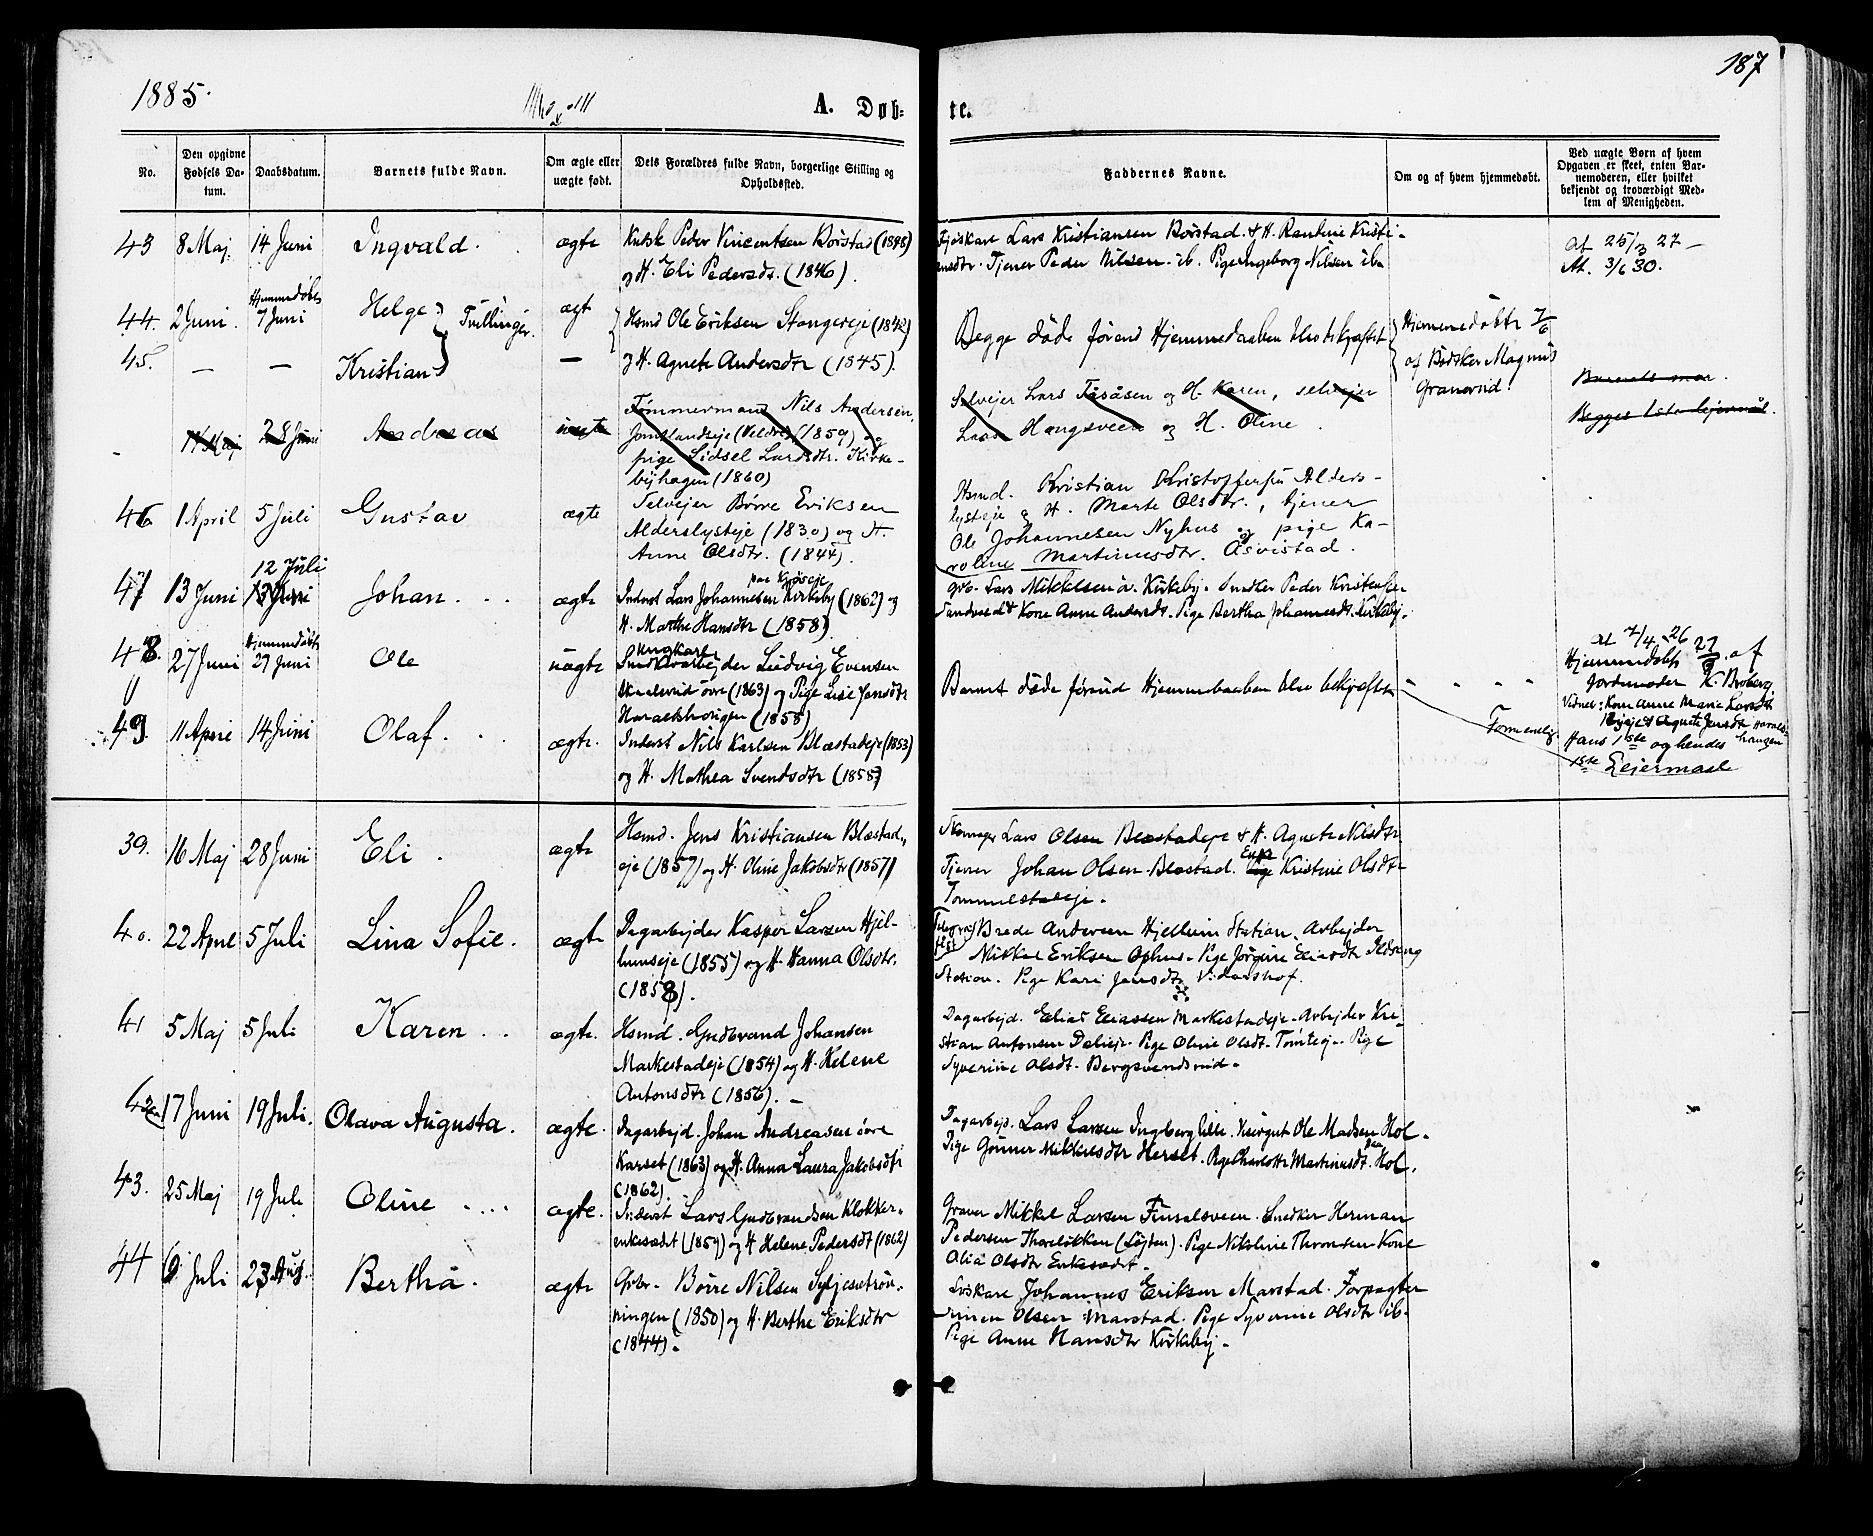 1885.
187
A. Døb-
te.
No.
Den opgivne
Fødsels Da-
tum.
Daabsdatum.
Barnets fulde Navn.
Om ægte eller
uægte født.
Dets Forældres fulde Navn, borgerlige Stilling og
Opholdssted.
Faddernes Navne.
Om og af hvem hjemmedøbt.
Ved uægte Børn af hvem
Opgaven er skeet, enten Bar-
nemoderen, eller hvilket
bekjendt og troværdigt Med-
lem af Menigheden.
43 8 Maj. 14 Juni Ingvald. ægte
Kudsk Peder Vincentsen Børstad (1848)
og H. Eli Pedersdt. (1846).
Fjøskare Lars Kristiansen Børstad & H. Rantine Kristi-
ansdtr. Tjener Peder Nilsen ib. Pige Ingeborg Nilsen ibn
at 25/3 27 -
At. 3/6 30.
44. 2 Juni. Hjemmedøbt
7 Juni Helge } Tvillinger. ægt
45. — — Kristian —
Hsmd Ole Eriksen Stangeeje (1842)
og H. Agnete Andersdtr (1845).
Begge døde førend Hjemmedaaben blev bekræftet
Hjemmedøbte 7/6
af Bødsker Magnus
Granerud.
- 14 Maj 28 Juni Andreas uægte
Tømmermand Nils Andersen
Jønslandseje (Veldre) (1859) og
pige Lidsel Larsdtr. Kirke-
byhagen (1860)
Selvejer Lars Fasåsen og H. Karen, selvejer
Lars Haugsveen og H. Oline.
Barnets mor.
Begges 1ste lejermål.
46 1 April 5 Juli Gustav ægte
Selvejer Børre Eriksen
Alderslysteje (1830) og H.
Anne Olsdtr. (1844).
Hsmd. Kristian Kristoffersen Alders-
lysteje & H. Marte Olsdtr., tjener
Ole Johannesen Nyhus og pige Ka-
roline Martinusdtr. Åsvistad.
47 13 Juni 12 Juli
13 Juni Johan. . . ægte
Inderst Lars Johannesen Kirkeby (1862) og
H. Marthe Hansdtr (1858)
Grb. Lars Mikkelsen ø. Kirkeby. Snedker Peder Kristensen
Sandvæld & Kone Anne Andersdt. Pige Bertha Johannesdt. Kirkeby.
48. 27 Juni Hjemmedøbt
27 Juni Ole uægte
Ludvig Evensen
øvre (1863) og Pige Lise Jensdtr
Haraldshaugen (1858)
Barnet døde førend Hjemmedaaben blev bekræftet
at 7/4 -26
Hjemmedøbt 27/6 af
Jordmoder K. Broberg.
Vidnet: Kone Anne Marie Larsdtr
& Agnete Jensdtr Haralds-
haugen
Hans 1ste og hendes
1ste Leiermaal
Formentlig
49 11 April 14 Juni Olaf. . . ægte.
Inderst Nils Karlsen Blæstadeje (1853)
og H. Mathea Svendsdtr (1858)
39. 16 Maj 28 Juni Eli. ægte
Hsmd. Jens Kristiansen Blæstad-
eje (1857) og H. Oline Jakobsdtr (1857)
Skomager Lars Olsen Blæstadeje & H. Agnete Nilsdtr
Tjener Johan Olsen Blæstad. Enke Kristine Olsdtr
Tommelstadeje.
40. 22 April 5 Juli Lina Sofie. ægte
Dagarbejder Kasper Larsen Hjel-
lumseje (1855) og H. Hanna Olsdtr.
(1858).
Brede Andersen Hjellum Station. Arbejder
Mikkel Eriksen Ophus. Pige Jørgine Eliasdtr Ilseng
Station. Pige Kari Jensdtr Vidarshof.
41 5 Maj 5 Juli Karen. . . ægte.
Hsmd. Gudbrand Johansen
Markestadeje (1854) og H. Helene
Antonsdtr (1856). —
Dagarbejd. Elias Eliassen Markestadeje. Arbejder Kri-
stian Antonsen Dælieje. Pige Oline Olsdt. Tømteej. Pige
Syverine Olsdt. Bergsvendsrud.
42 17 Juni 19 Juli. Olava Augusta. ægte.
Dagarbejd. Johan Andreasen øvre
Karset (1863) og H. Anna Laura Jakobsdtr
(1862).
Dagarbejd. Lars Larsen Ingberg lille. Ole Madsen Hol.
Pige Gunner Mikkelsdtr Herset. Pige Charlotte Martinusdt. Hol.
43. 25 Maj 19 Juli Oline . . . . ægte.
Inderst Lars Gudbrandsen Klokker-
enkesædet (1859) og H Helene Pedersdt (1862)
Graver Mikkel Larsen Finsalsveen. Snedker Herman
Pedersen Thoreløkken (Løjten). Pige Nikoline Thronsen Kone
Olia Olsdtr Enkesædet.
44 6 Juli 23 Aug. Bertha. ægte
Grbr. Børre Nilsen Syljesetrøn-
ningen (1850) og H. Berthe Eriksdtr
(1844).
Løskare Johannes Eriksen Marstad. Forpagter
Simen Olsen Marstad. Pige Syverine Olsdtr ib.
Pige Anne Hansdtr Kirkeby.